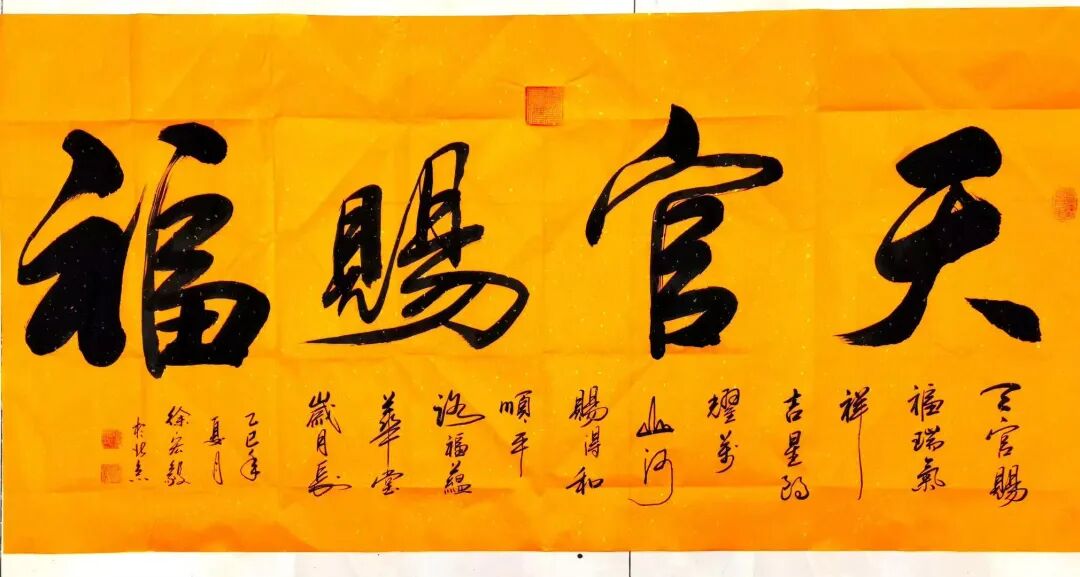 天官賜福
天官賜
福瑞氣
祥
吉星朗
耀萬
山河
賜得和
順平
福蘊
華堂
歲月長
乙巳年
夏月
徐宏毅
於北京